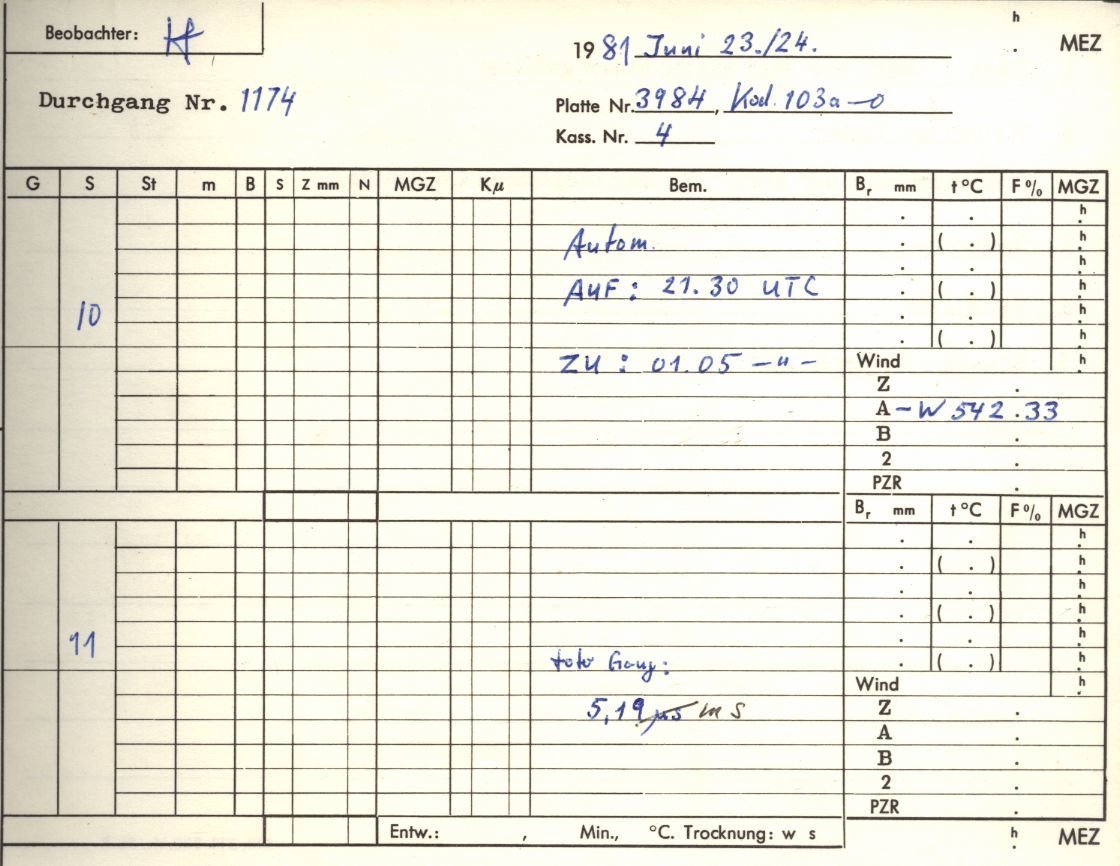 Beobachter:
h
1981 Juni 23./24. . MEZ
Durchgang Nr. 1174
Platte Nr. 3984, Kod. 103a-O
Kass. Nr. 4
G S St m B S Z mm N MGZ Kμ Bem. Br mm t °C F % MGZ
. . h
Autom. . ( . ) h
. . h
AUF : 21.30 UTC . ( . ) h
10 . . h
. ( . ) h
ZU : 01.05 -"- Wind h
Z .
A -W 542.33
B .
2 .
PZR .
Br mm t °C F % MGZ
. . h
. ( . ) h
. . h
. ( . ) h
11 . . h
Gang: . ( . ) h
Wind h
5,19 µs ms Z .
A .
B .
2 .
PZR .
Entw.: , Min., °C. Trocknung: w s h MEZ